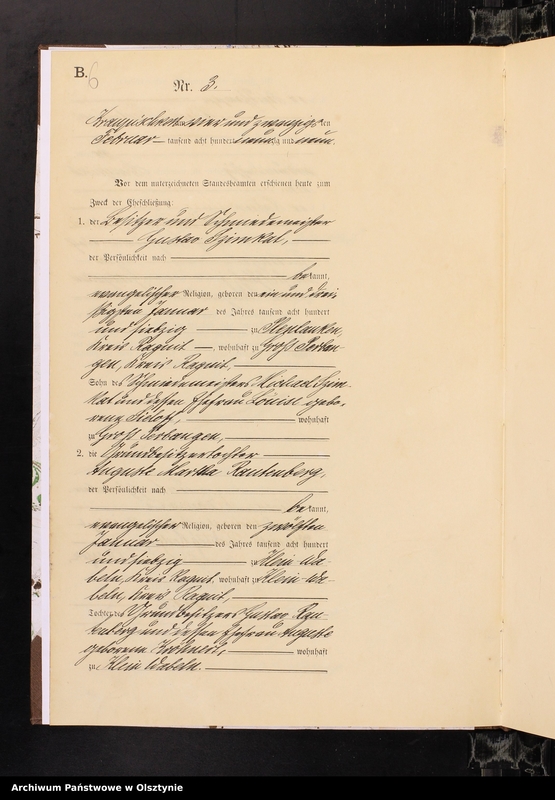 B. 6
Nr. 3.
Kraupischken am vier und zwanzigsten
Februar tausend acht hundert neunzig und neun.
Vor dem unterzeichneten Standesbeamten erschienen heute zum
Zweck der Eheschließung:
1. der Besitzer und Schmiedemeister
Gustav
der Persönlichkeit nach
bekannt,
evangelischer Religion, geboren den ein und drei-
ßigsten Januar des Jahres tausend acht hundert
und siebzig zu
Kreis Ragnit, wohnhaft zu Groß Perban-
gen, Kreis Ragnit,
Sohn des Schmiedemeisters Michael
und dessen Ehefrau Louise gebo-
rene wohnhaft
zu Groß Perbangen,
2. die Grundbesitzertochter
Auguste Martha Rautenberg,
der Persönlichkeit nach
bekannt,
evangelischer Religion, geboren den zwölften
Januar des Jahres tausend acht hundert
und siebzig zu Klein Wa-
beln, Kreis Ragnit, wohnhaft zu Klein-Wa-
beln, Kreis Ragnit,
Tochter des Grundbesitzers Gustav Rau-
tenberg und dessen Ehefrau Auguste
geborene wohnhaft
zu Klein Wabeln.
Archiwum Państwowe w Olsztynie